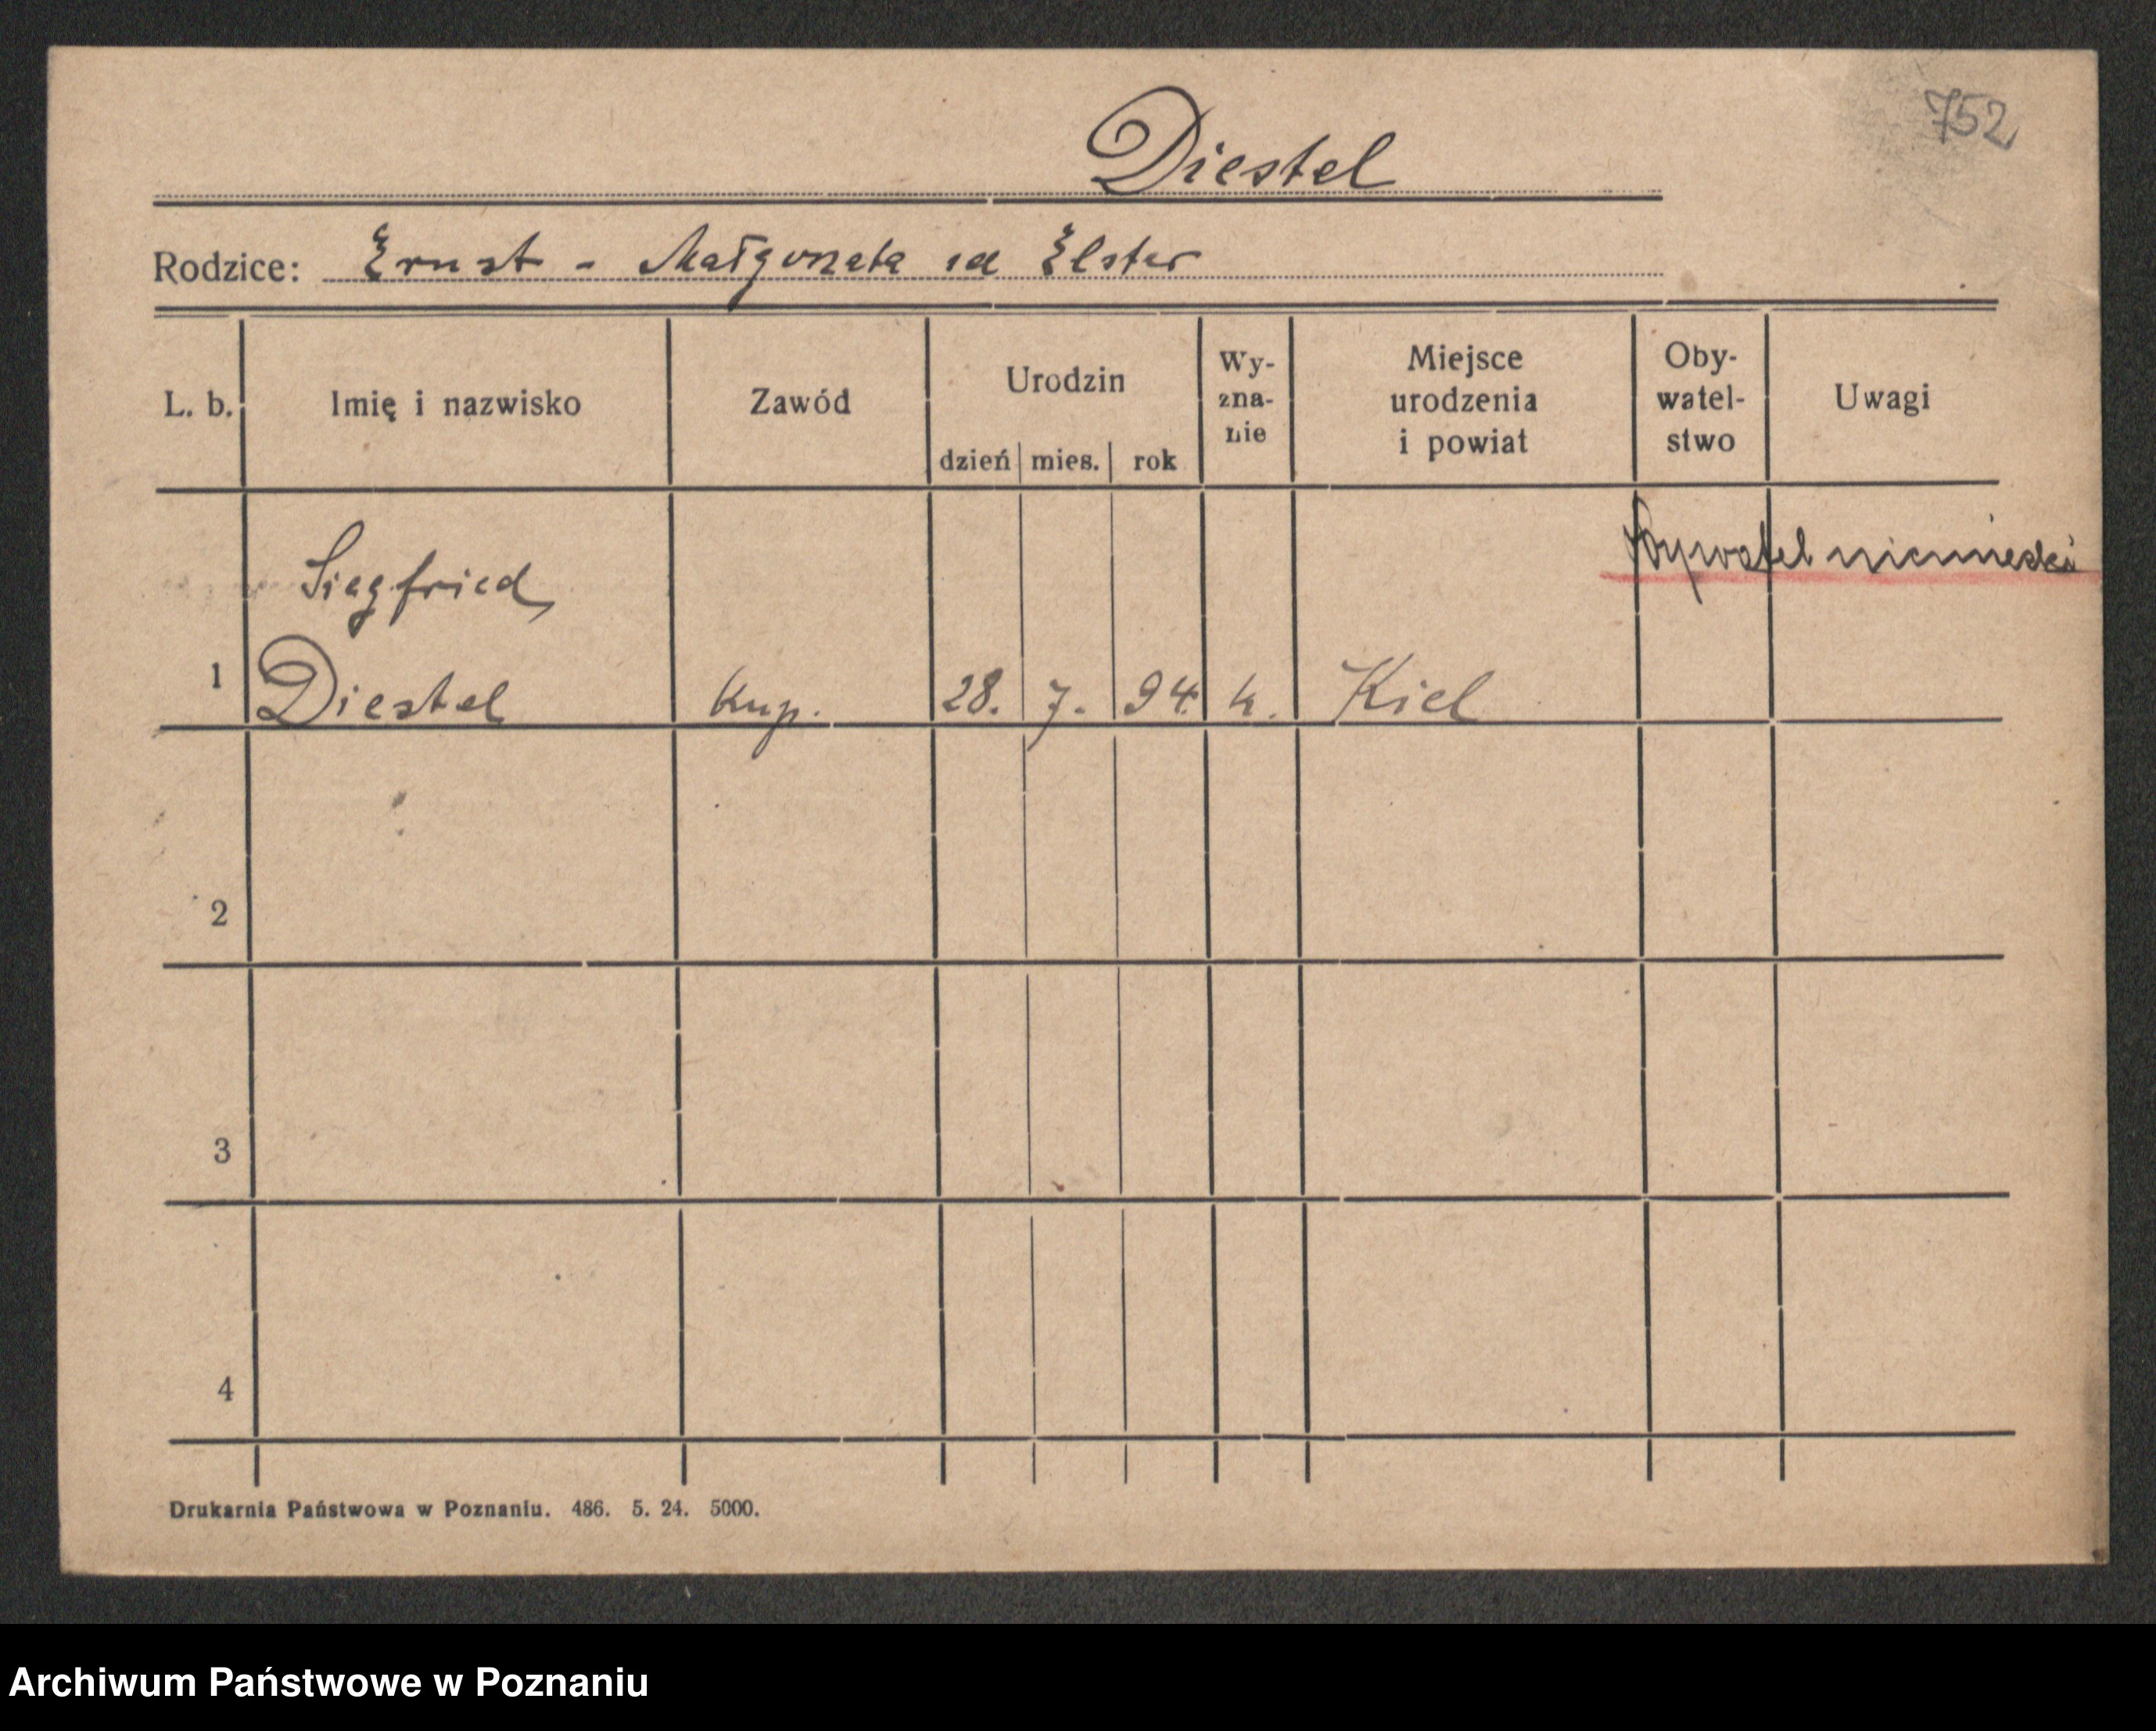 752
Diestel
Rodzice: Ernst - Małgorzata id Elster
L. b. Imię i nazwisko Zawód Urodzin dzień mies. rok Wy-zna-nie Miejsce urodzenia i powiat Oby-watel-stwo Uwagi
Obywatel niemiecki
Siegfried
1 Diestel kup. 28. 7. 94. k. Kiel
2
3
4
Drukarnia Państwowa w Poznaniu. 486. 5. 24. 5000.
Archiwum Państwowe w Poznaniu